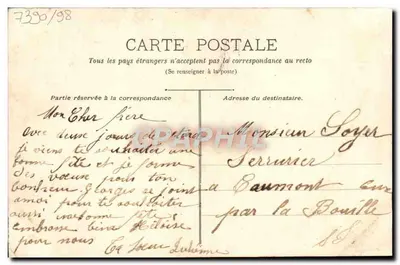 7390/98
CARTE POSTALE
Tous les pays étrangers n'acceptent pas la correspondance au recto
(Se renseigner à la poste)
Partie réservée à la correspondance
Adresse du destinataire.
Mon Cher frère
Avec deux jours de
je viens te souhaiter une
bonne fête et je forme
des vœux pour ton
bonheur Georges se joint
a moi pour te souhaiter
aussi une bonne fête
embrasse bien
pour nous
Ta Sœur
Monsieur Soyer
Serrurier
a Caumont
par la Bouille